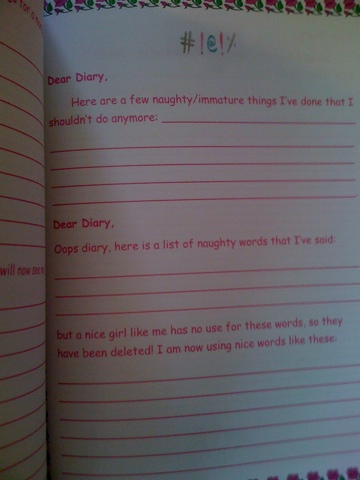 #!@!%
Dear Diary,
Here are a few naughty/immature things I've done that I
shouldn't do anymore:
Dear Diary,
Oops diary, here is a list of naughty words that I've said:
will now
but a nice girl like me has no use for these words, so they
have been deleted! I am now using nice words like these: